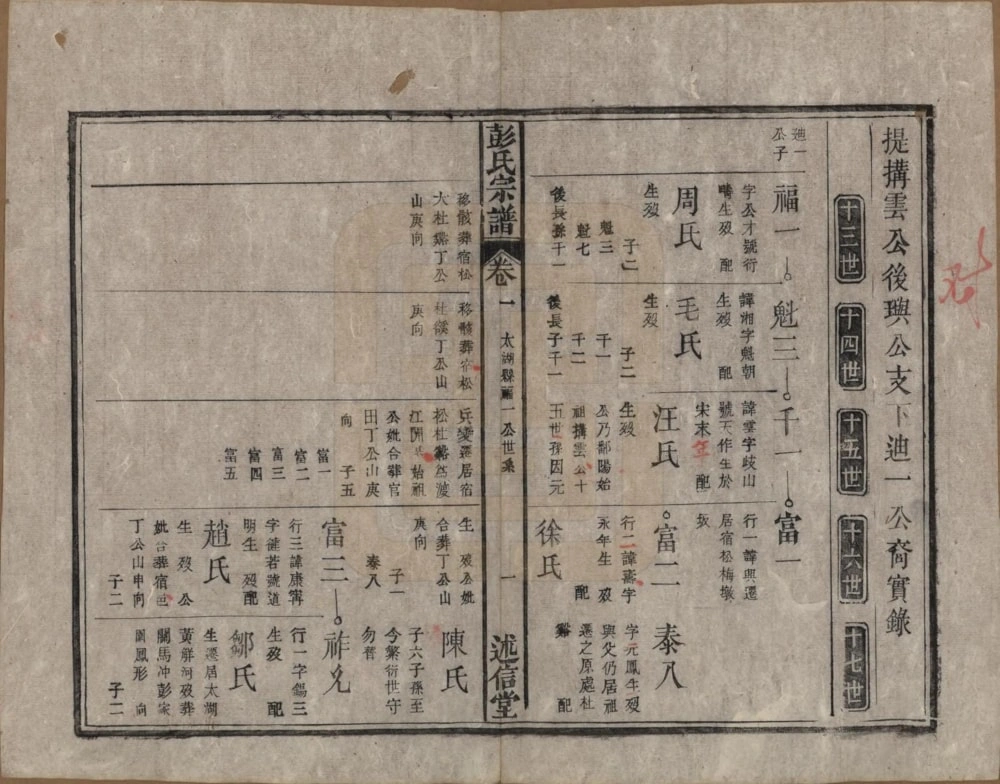 提搆雲公後璵公支下迪一公裔實錄
十三世
十四世
十五世
十六世
十七世
迪一
公子
福一
字公才號衍
疇生歿 配
周氏
生歿
子二
魁三
魁七
後長孫千一
魁三
諱湘字魁朝
生歿 配
毛氏
生歿
子二
千一
千二
後長子千一
千一
諱雲字歧山
號天作生於
宋末年 配
汪氏
生歿
公乃鄱陽始
祖搆雲公十
五世孫因元
富一
行一諱興遷
居宿松梅墩
坂
富二
行二諱壽字
永年生 歿
配
徐氏
泰八
字元鳳生歿
與父仍居祖
遷之原處杜
谿 配
彭氏宗譜
卷一
太湖縣福一公世系
一
述信堂
移骸葬宿松
大杜谿丁公
山庚向
移骸葬宿松
杜谿丁公山
庚向
兵變遷居宿
松杜谿為渡
江開基始祖
公妣合葬官
田丁公山庚
向 子五
富一
富二
富三
富四
富五
生 歿公妣
合葬丁公山
庚向
子一
泰八
富三
行三諱康寧
字健若號道
明生 歿配
趙氏
生 歿 公
妣合葬宿邑
丁公山申向
子二
陳氏
子六子孫至
今繁衍世守
勿替
祚兌
行一字錫三
生歿 配
鄒氏
生遷居太湖
黃觧河歿葬
關馬沖彭家
圖鳳形 向
子二